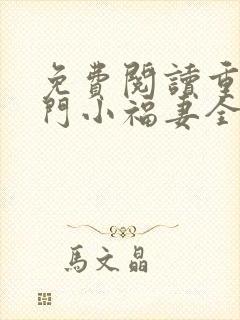 免費閱讀重
門小福妻全
馬文晶